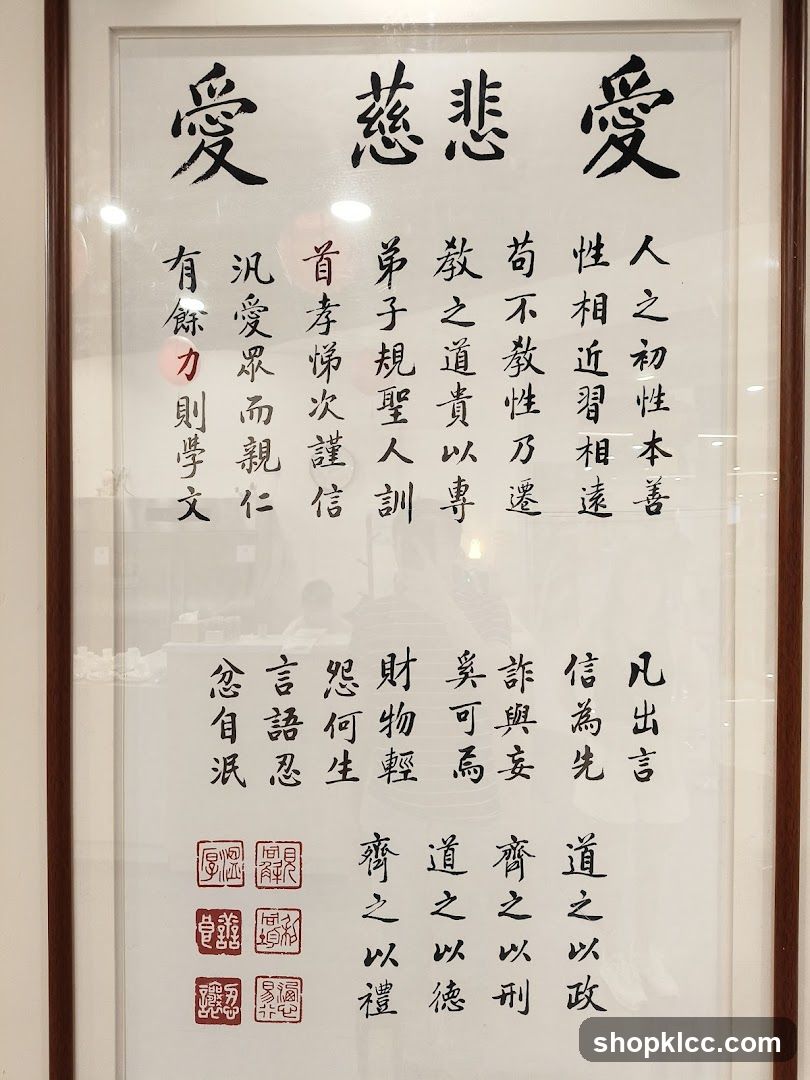 愛 悲慈 愛
人之初性本善
性相近習相遠
苟不教性乃遷
教之道貴以專
弟子規聖人訓
首孝悌次謹信
汎愛眾而親仁
有餘力則學文
凡出言
信為先
詐與妄
奚可焉
財物輕
怨何生
言語忍
忿自泯
道之以政
齊之以刑
道之以德
齊之以禮
shopklcc.com